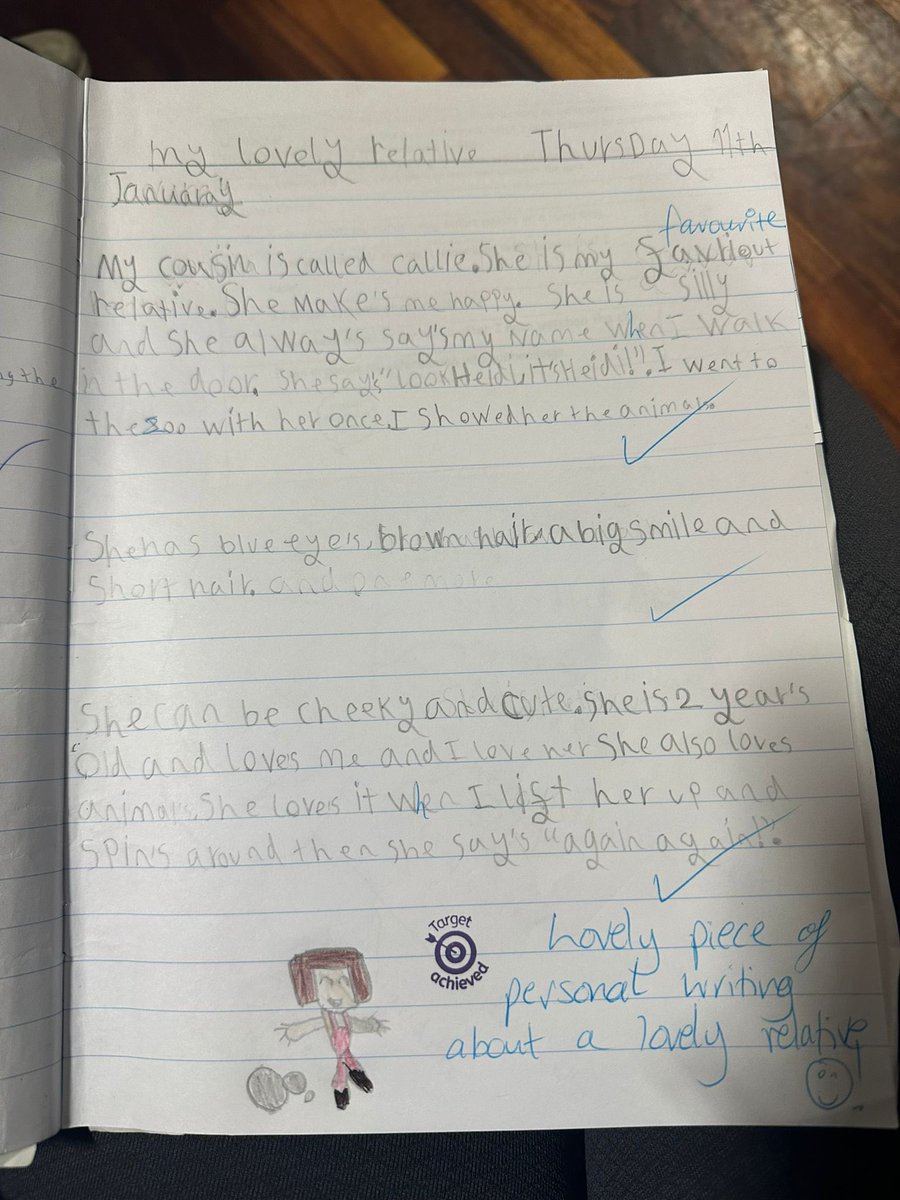 my lovely relative Thursday 11th
Januaray
favourite
My cousin is called callie. She is my
relative. She make's me happy. She is silly
and she alway's say's my name when I walk
in the door. She say's "look Heidi, it's Heidi!". I went to
the zoo with her once. I showed her the animals.
She has blue eye's, brown hair, a big smile and
short hair. and one more
She can be cheeky and cute. She is 2 year's
old and loves me and I love her she also loves
animals. She loves it when I lift her up and
spins around then she say's "again again!".
Target
achieved
Lovely piece of
personal writing
about a lovely relative
ng the